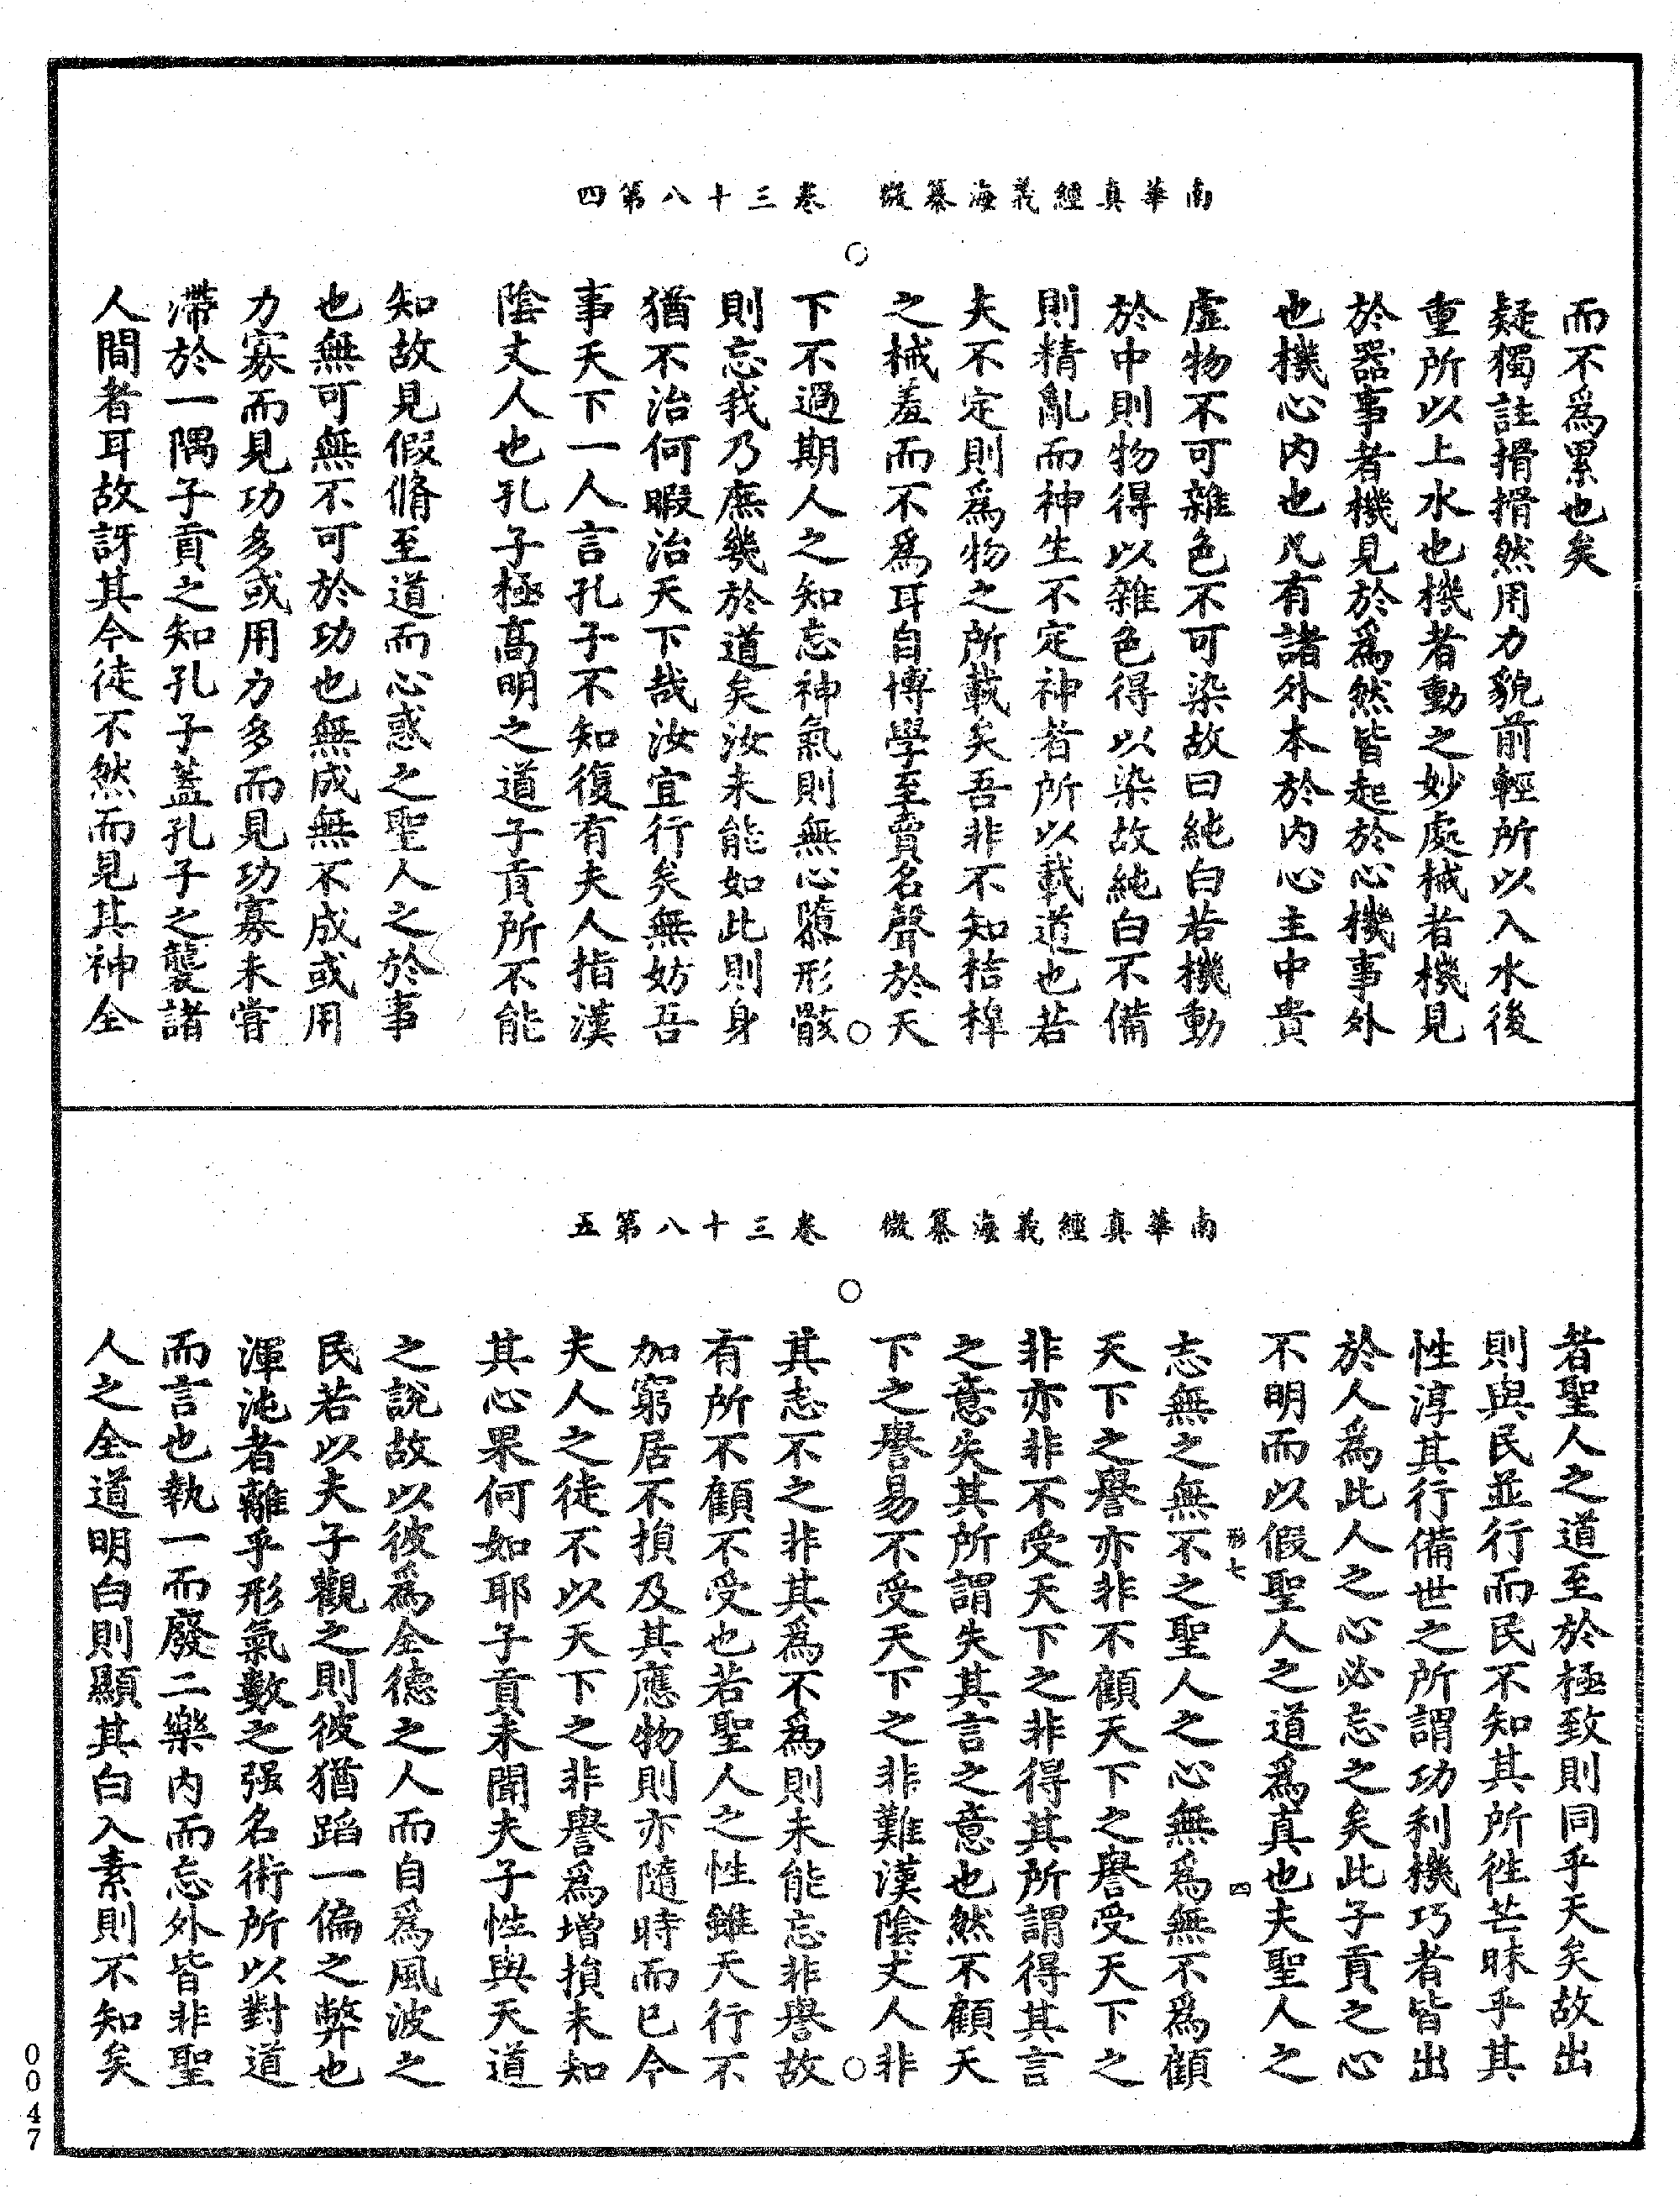 南華真經義海纂微 卷三十八第四
而不為累也矣
疑獨註搰搰然用力貌前輕所以入水後
重所以上水也機者動之妙處械者機見
於器事者機見於為然皆起於心機事外
也機心内也凡有諸外本於内心主中貴
虛物不可雜色不可染故曰純白若機動
於中則物得以雜色得以染故純白不備
則精亂而神生不定神者所以載道也若
夫不定則為物之所載矣吾非不知桔槔
之械羞而不為耳自博學至賣名聲於天
下不過期人之知忘神氣則無心隳形骸
則忘我乃庶幾於道矣汝未能如此則身
猶不治何暇治天下哉汝宜行矣無妨吾
事天下一人言孔子不知復有夫人指漢
陰丈人也孔子極髙明之道子貢所不能
知故見假脩至道而心惑之聖人之於事
也無可無不可於功也無成無不成或用
力寡而見功多或用力多而見功寡未嘗
滯於一隅子貢之知孔子蓋孔子之襲諸
人間者耳故訝其今徒不然而見其神全
南華真經義海纂微 卷三十八第五
者聖人之道至於極致則同乎天矣故出
則與民並行而民不知其所徃芒昧乎其
性淳其行備世之所謂功利機巧者皆出
於人為此人之心必忘之矣此子貢之心
不明而以假聖人之道為真也夫聖人之
志無之無不之聖人之心無為無不為顧
天下之譽亦非不顧天下之譽受天下之
非亦非不受天下之非得其所謂得其言
之意失其所謂失其言之意也然不顧天
下之譽易不受天下之非難漢陰丈人非
其志不之非其為不為則未能忘非譽故
有所不顧不受也若聖人之性雖天行不
加窮居不損及其應物則亦隨時而已今
夫人之徒不以天下之非譽為增損未知
其心果何如耶子貢未聞夫子性與天道
之說故以彼為全德之人而自為風波之
民若以夫子觀之則彼猶蹈一偏之弊也
渾沌者離乎形氣數之强名術所以對道
而言也執一而廢二樂内而忘外皆非聖
人之全道明白則顯其白入素則不知矣
0047